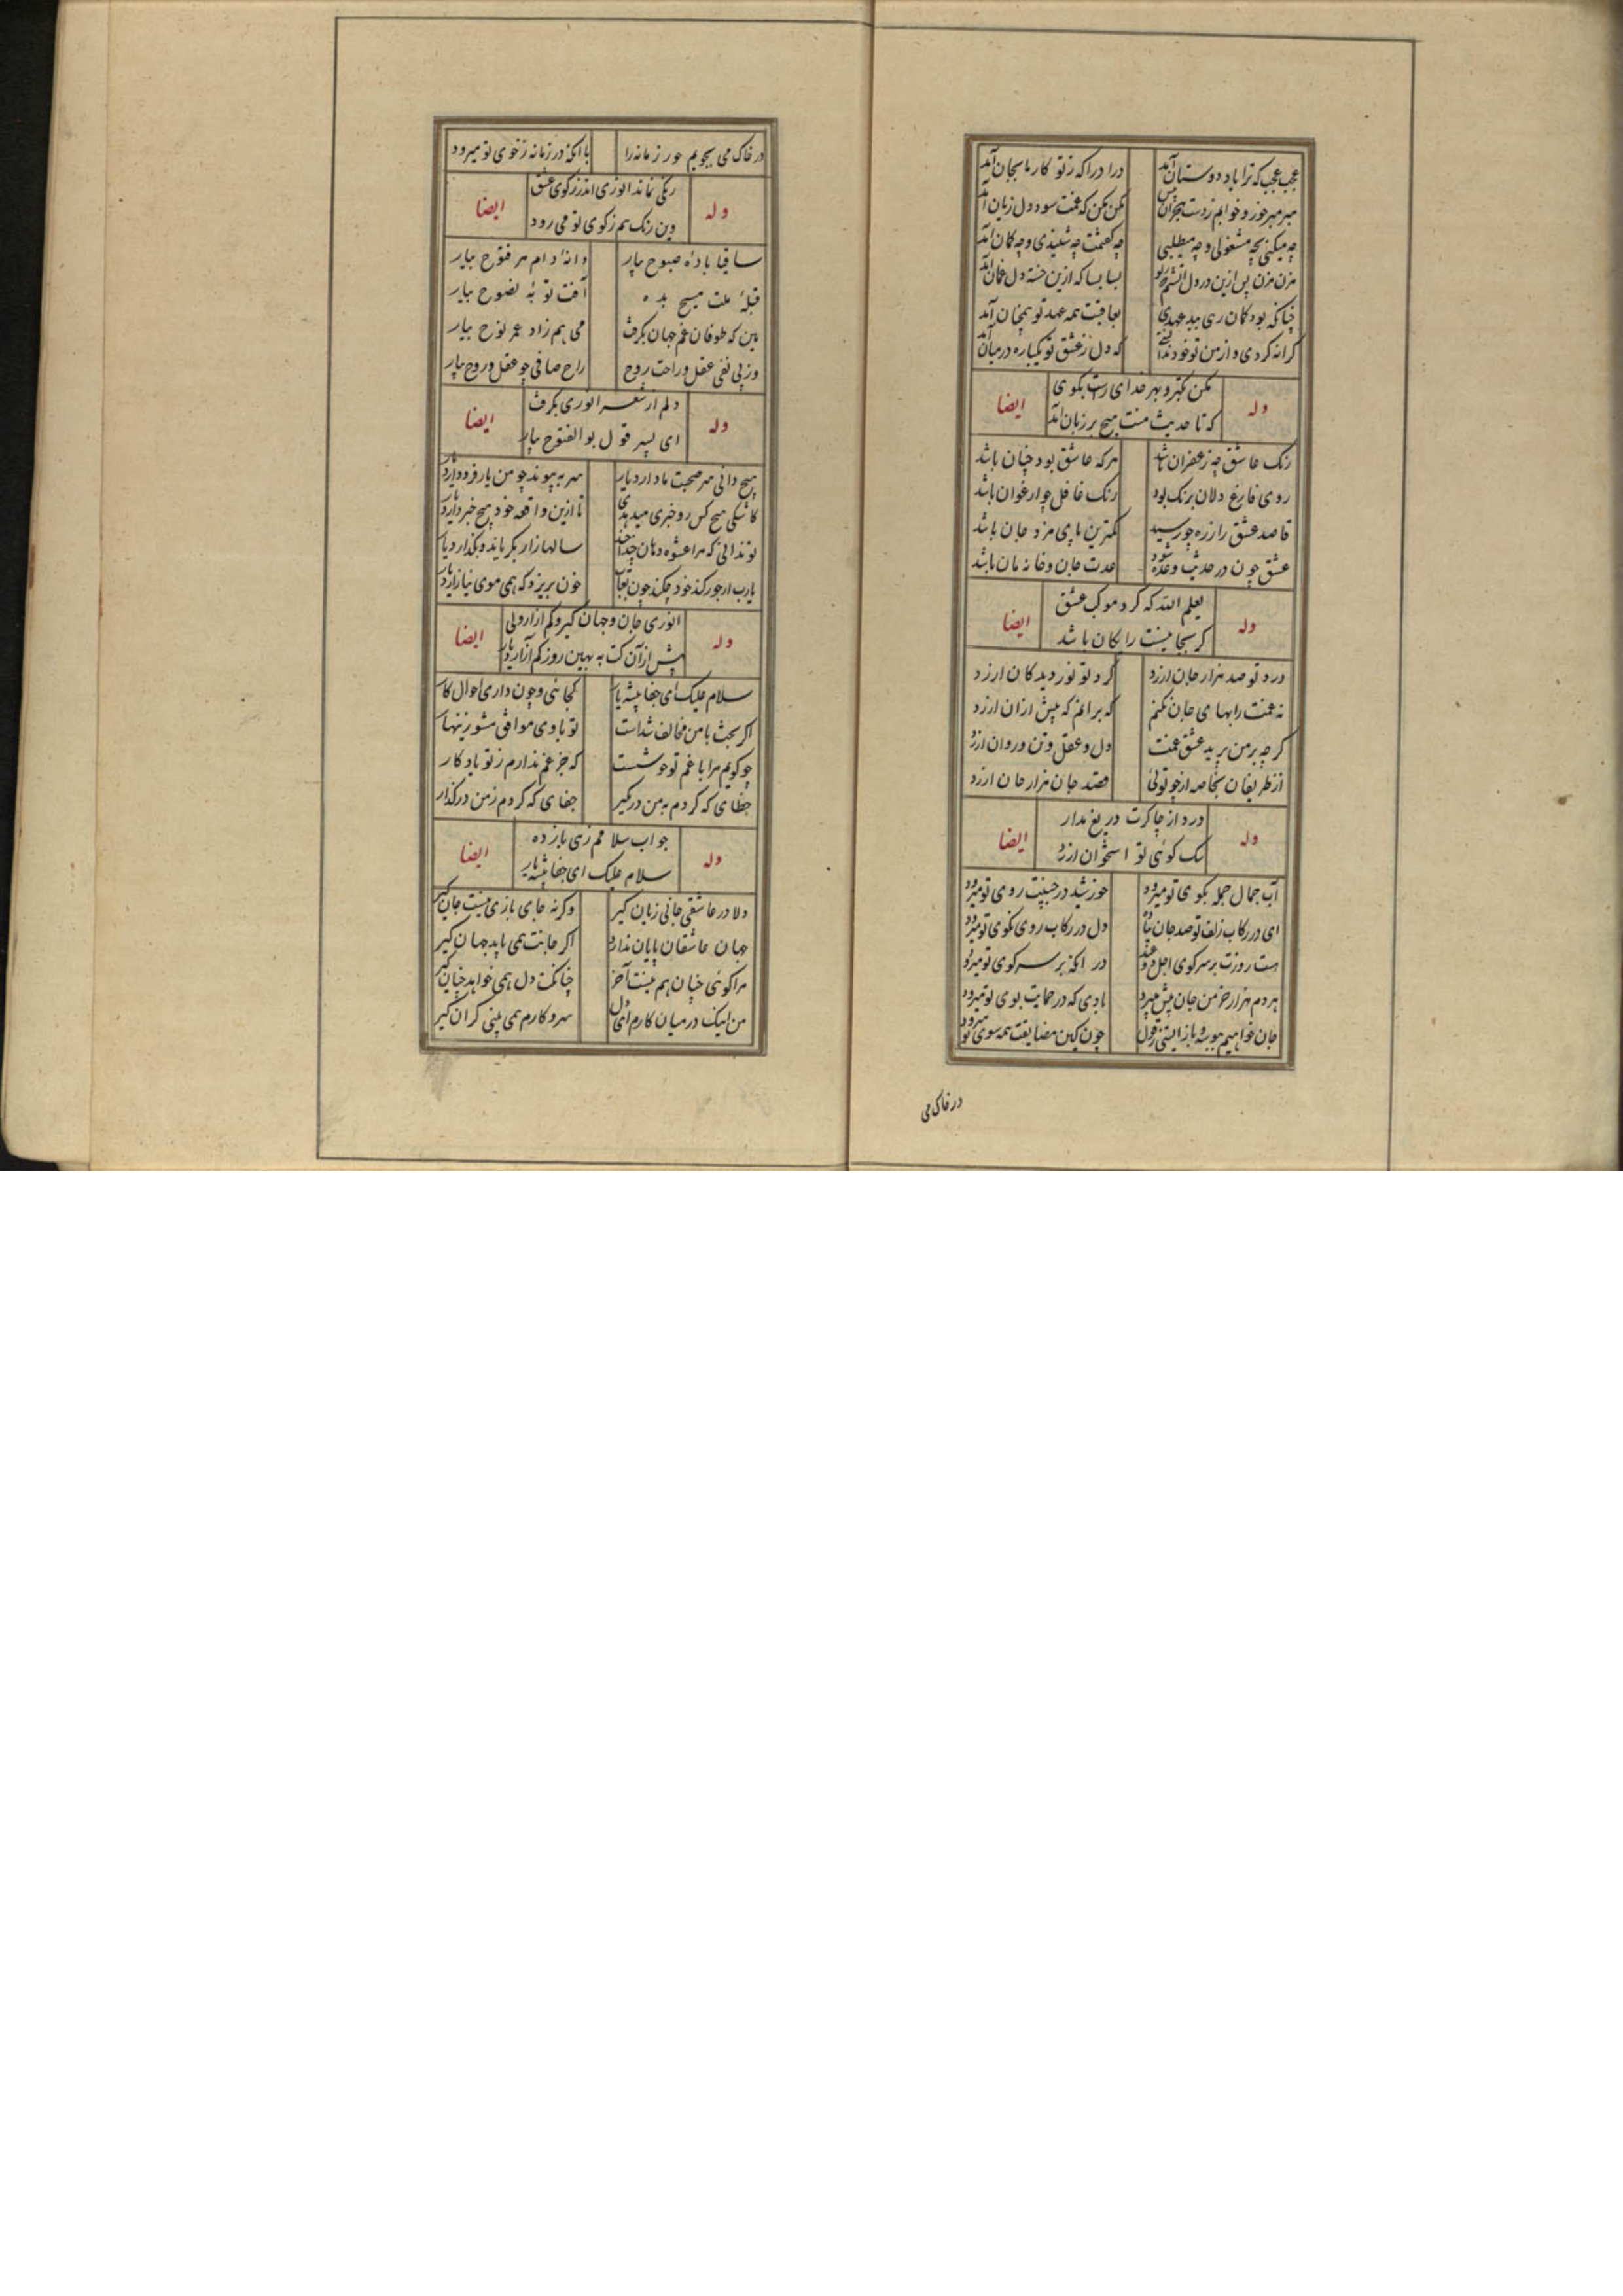 عجب عجب که ترا یاد دوستان آمد
درا درا که ز تو کار ما بجان آمد
مبر مبر خور و خوابم ز دست هجران بس
مکن مکن که غمت سود دل زیان آمد
چه میکنی بچه مشغولی و چه میطلبی
چه گفتمت چه شنیدی و چه گمان آمد
مزن مزن پس ازین در دل آتشم که ز تو
بسا بسا که ازین خسته دل فغان آمد
چنانکه بود گمان رهی ببدعهدی
بعاقبت همه عهد تو همچنان آمد
کرانه کردی و از من تو خود ندانستی
که دل ز عشق تو یکباره در میان آمد
وله
مکن تکبر و بهر خدای راست بگوی
که تا حدیث منت هیچ بر زبان آمد
ایضا
رنک عاشق چه زعفران باشد
هر که عاشق بود چنان باشد
روی فارغ دلان برنک بود
رنک غافل چو ارغوان باشد
قاصد عشق را ز ره چو رسید
کمترین پای مزد جان باشد
عشق چون در حدیث وعده شود
عدت جان و خانه مان باشد
وله
یعلم الله که کرد موکب عشق
کر بجانیست رایکان باشد
ایضا
درد تو صد هزار جان ارزد
کرد تو نور دیدکان ارزد
نه غمت را بهای جان نکنم
که برانم که بیش از ان ارزد
کر چه بر من برید عشق غمت
دل و عقل و تن و روان ارزد
از ظریفان بخاصه از چو توئی
قصد جان هزار جان ارزد
وله
درد از چاکرت دریغ مدار
سک کوئی تو استخوان ارزد
ایضا
آب جمال جمله بکوی تو میرود
خورشید در جنیبت روی تو میرود
ای در رکاب زلف تو صد جان پیاده
دل در رکاب روی نکوی تو میرود
هست روزت بر سر کوی اجل
در انکه بر سر کوی تو میرود
هر دم هزار خرمن جان پیش میبرد
بادی که در حمایت بوی تو میرود
جان خواهیم ببوسه و باز ایستی ز قول
چون کین مضایقت همه سوی تو میرود
در خاک می
در خاک می بجویم جور زمانه را
با انکه در زمانه ز خوی تو میرود
وله
رنکی نماند انوری اندر ز کوی عشق
وین رنک هم ز کوی تو می رود
ایضا
ساقیا باده صبوح بیار
دانه دام هر فتوح بیار
قبله ملت مسیح بده
آفت توبه نصوح بیار
هین که طوفان غم جهان بکرفت
می هم زاد عمر نوح بیار
وز پی نفی عقل و راحت روح
راح صافی چو عقل و روح بیار
وله
دلم از شعر انوری بکرفت
ای پسر قول بو الفتوح بیار
ایضا
هیچ دانی سر صحبت ما دارد یار
سر به پیوند چو من یار فرو دارد یار
کاشکی هیچ کس رو خبری میدهدی
تا ازین واقعه خود هیچ خبر دارد یار
تو ندانی که مرا عشوه دهان چند
سالها زار بکریاند و بکذارد یار
یارب ار جور کند خود چکند چون بعتاب
خون بریزد که همی موی نیازارد یار
وله
انوری جان و جهان کیر و کم ازار ولی
پیش از آن کت به بهین روز کم آزارد یار
ایضا
سلام علیک ای جفا پیشه یار
کجائی و چون داری احوال کار
اکر بخت با من مخالف شداست
تو باری موافق مشو زینهار
چو کویم مرا با غم تو خوشست
که جز غم ندارم ز تو یادکار
خطای که کردم به من در مکیر
جفای که کردم ز من درکذار
وله
جواب سلامم رهی بازده
سلام علیک ای جفا پیشه یار
ایضا
دلا در عاشقی جانی زیان کیر
وکرنه جای بازی نیست جان کیر
جهان عاشقان پایان ندارد
اکر جانت همی باید جهان کیر
مرا کوئی چنان هم نیست آخر
چنانکت دل همی خواهد چنان کیر
من اینک در میان کارم ای دل
سر و کارم همی بینی کران کیر